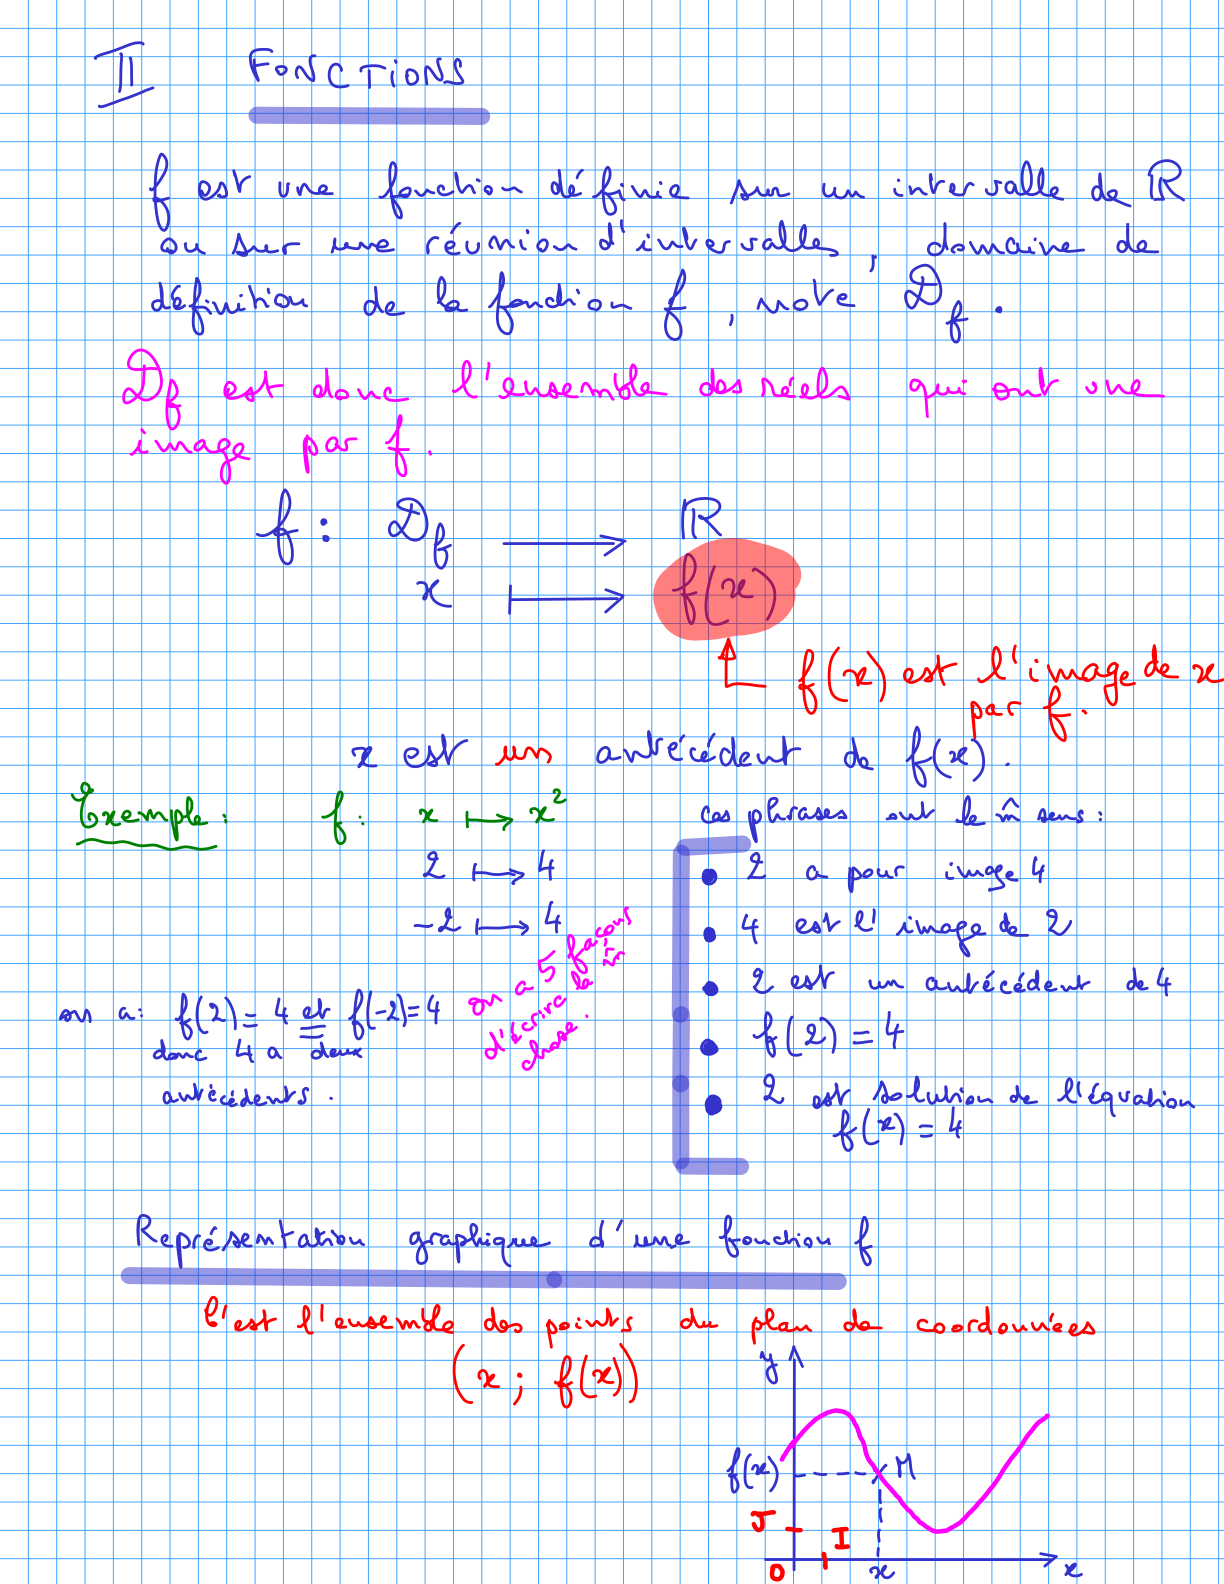 II FONCTIONS
f est une fonction définie sur un intervalle de ℝ
ou sur une réunion d'intervalles, domaine de
définition de la fonction f, note 𝒟f.
𝒟f est donc l'ensemble des réels qui ont une
image par f.
f : 𝒟f ⟶ ℝ
x ⟼ f(x)
f(x) est l'image de x
par f.
x est un antécédent de f(x).
Exemple : f : x ⟼ x²
2 ⟼ 4
-2 ⟼ 4
on a : f(2) = 4 et f(-2) = 4
donc 4 a deux
antécédents.
on a 5 façons
d'écrire la m̂
chose.
ces phrases ont le m̂ sens :
• 2 a pour image 4
• 4 est l'image de 2
• 2 est un antécédent de 4
• f(2) = 4
• 2 est solution de l'équation
f(x) = 4
Représentation graphique d'une fonction f
C'est l'ensemble des points du plan de coordonnées
(x ; f(x))
y
f(x) M
J I
O x x